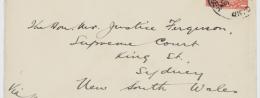 The Hon. Mr. Justice Ferguson,
Supreme Court
King St.
Sydney
New South Wales
Via